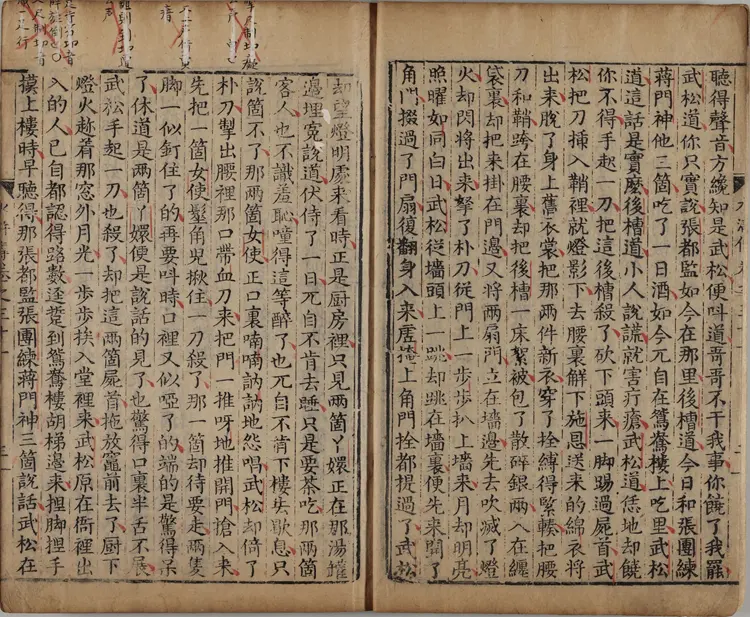 聽得聲音方纔知是武松便呌道哥哥不干我事你饒了我罷
武松道你只實說張都監如今在那里後槽道今日和張團練
蔣門神他三箇吃了一日酒如今兀自在鴛鴦樓上吃里武松
道這話是實麽後槽道小人說謊就害疔瘡武松道恁地却饒
你不得手起一刀把這後槽殺了砍下頭來一脚踢過屍首武
松把刀插入鞘裡就燈影下去腰裏觧下施恩送來的綿衣將
出來脫了身上舊衣裳把那兩件新衣穿了拴縛得緊輳把腰
刀和鞘跨在腰裏却把後槽一床絮被包了散碎銀兩入在纏
袋裏却把來掛在門邊又將兩扇門立在墻邊先去吹滅了燈
火却閃將出來拏了朴刀從門上一步步扒上墻來月却明亮
照曜如同白日武松從墻頭上一跳却跳在墻裏便先來開了
角門掇過了門扇復翻身入來虛掩上角門拴都提過了武松
却望燈明處來看時正是厨房裡只見兩箇丫嬛正在那湯罐
邊埋寃說道伏侍了一日兀自不肯去睡只是要茶吃那兩箇
客人也不識羞恥噇得這等醉了也兀自不肯下樓去歇息只
說箇不了那兩箇女使正口裏喃喃訥訥地怨唱武松却倚了
朴刀掣出腰裡那口帶血刀來把門一推呀地推開門搶入來
先把一箇女使髽角兒揪住一刀殺了那一箇却待要走兩隻
脚一似釘住了的再要呌時口裡又似啞了的端的是驚得呆
了休道是兩箇丫嬛便是說話的見了也驚得口裏半舌不展
武松手起一刀也殺了却把這兩箇屍首拖放竈前去了厨下
燈火趂着那窓外月光一步步挨入堂裡來武松原在衙裡出
入的人已自都認得路數逕踅到鴛鴦樓胡梯邊來捏脚捏手
摸上樓時早聽得那張都監張團練蔣門神三箇說話武松在